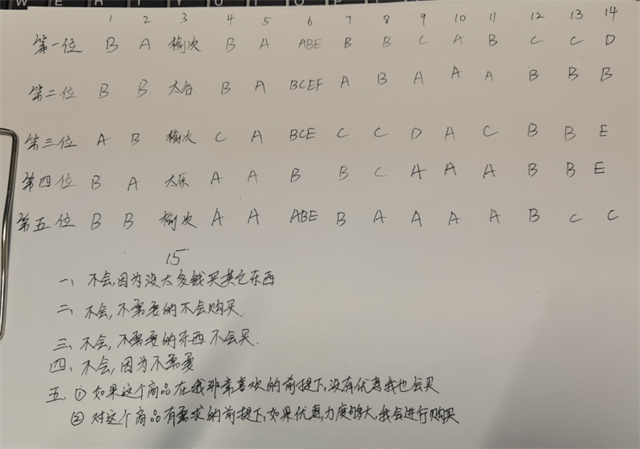 1 2 3 4 5 6 7 8 9 10 11 12 13 14
第一位 B A 榆次 B A ABE B B C A B C C D
第二位 B B 太谷 B A BCEF A B A A A B B B
第三位 A B 榆次 C A BCE C C D A C B B E
第四位 B A 太原 A A B B C A A A B B E
第五位 B B 榆次 A A ABE B A A A A B C C
15
一、不会,因为没太多钱买其它东西
二、不会,不需要的不会购买.
三、不会,不需要的东西不会买.
四、不会,因为不需要
五、① 如果这个商品在我非常喜欢的前提下,没有优惠我也会买
② 对这个商品有需求的前提下,如果优惠力度够大,我会进行购买